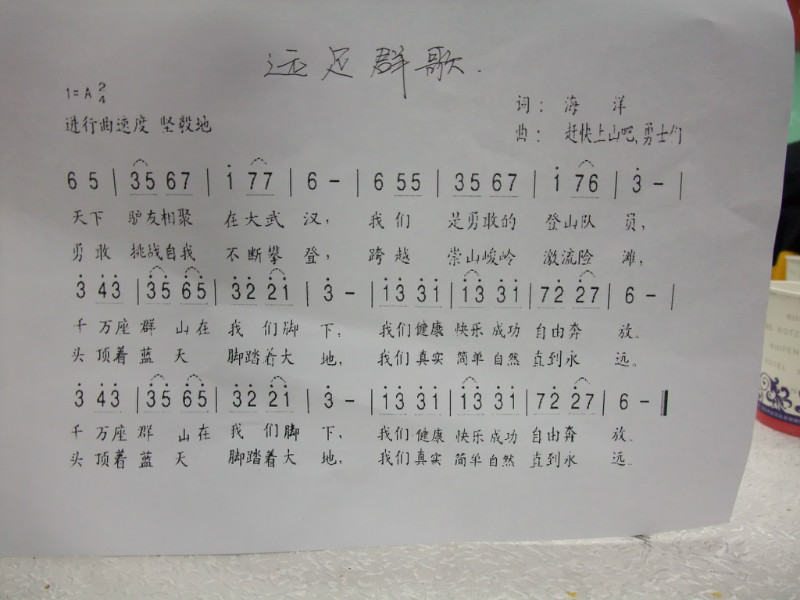 远足群歌.
1=A 2/4
词: 海 洋
进行曲速度 坚毅地
曲: 赶快上山吧、勇士们
6 5 | 35 67 | i 77 | 6 - | 6 55 | 35 67 | i 76 | 3̇ - |
天下 驴友相聚 在大武 汉, 我们 是勇敢的 登山队 员,
勇敢 挑战自我 不断攀 登, 跨越 崇山峻岭 激流险 滩,
3̇ 4̇3̇ | 3̇5̇ 6̇5̇ | 3̇2̇ 2̇i | 3̇ - | i3̇ 3̇i | i3̇ 3̇i | 72̇ 2̇7 | 6 - |
千万座 群 山在 我 们脚 下, 我们健康 快乐成功 自由奔 放。
头顶着 蓝 天 脚踏着大 地, 我们真实 简单自然 直到永 远。
3̇ 4̇3̇ | 3̇5̇ 6̇5̇ | 3̇2̇ 2̇i | 3̇ - | i3̇ 3̇i | i3̇ 3̇i | 72̇ 2̇7 | 6 - ‖
千万座 群 山在 我 们脚 下, 我们健康 快乐成功 自由奔 放。
头顶着 蓝 天 脚踏着大 地, 我们真实 简单自然 直到永 远。